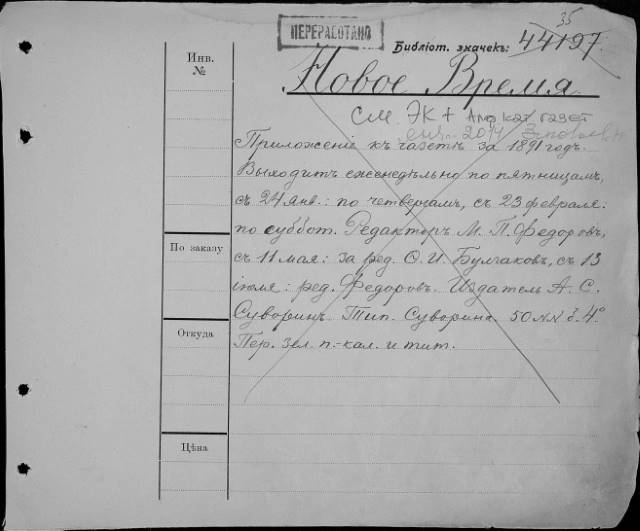 ПЕРЕРАБОТАНО
35
Библіот. значекъ: 44197
Инв.
№
Новое Время
см. ЭК + Алф кат газет
янв. 2014
Приложеніе къ газетѣ за 1891 годъ.
Выходитъ еженедѣльно по пятницамъ,
съ 24 янв.: по четвергамъ, съ 23 февраля:
по суббот. Редакторъ М. П. Федоровъ,
съ 11 мая: за ред. Ѳ. И. Булгаковъ, съ 13
іюля: ред. Федоровъ. Издатель А. С.
Суворинъ. Тип. Суворина. 50 №№ б. 4°
Пер. зел. п.-кал. и тит.
По заказу
Откуда
Цѣна